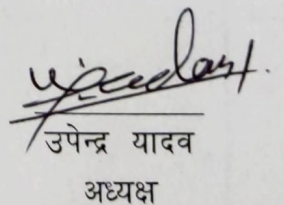 उपेन्द्र यादव
अध्यक्ष